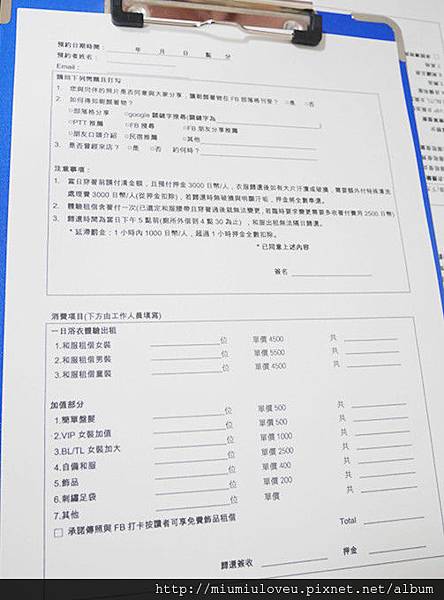 預約日期時間： 年 月 日 點 分
預約者姓名：
Email：
請回下列問題且打勾
1. 您與同伴的照片是否同意與大家分享，讓朝顏著物在 FB 部落格刊登？ ○是 ○否
2. 如何得知朝顏著物？
○部落格分享 ○google 關鍵字搜尋:關鍵字為
○PTT 推薦 ○FB 搜尋 ○FB 朋友分享推薦
○朋友口頭介紹 ○民宿推薦 ○其他
3. 是否曾經來店？ ○是 ○否 約何時？
注意事項：
1. 當日穿著前請付清金額，且預付押金 3000 日幣/人，衣服歸還後如有大片汙漬或破損，需要額外付特殊清洗
處理費 3000 日幣/人(從押金扣除)，若歸還時無破損與明顯汙垢，押金將全數奉還。
2. 體驗租借含著付一次(已選定和服腰帶且穿著過後就無法變更，若臨時要求變更需要多收著付費用 2500 日幣)
3. 歸還時間為當日下午 5 點前(廁所外借到 4 點 30 為止)，和服出租無法隔日歸還。
*延滯罰金：1 小時內 1000 日幣/人，超過 1 小時押金全數扣除。
*已同意上述內容
簽名
消費項目(下方由工作人員填寫)
一日浴衣體驗出租
1.和服租借女裝 位 單價 4500 共
2.和服租借男裝 位 單價 5500 共
3.和服租借童裝 位 單價 4500 共
加值部分
1.簡單盤髮 位 單價 500 共
2.VIP 女裝加值 位 單價 500 共
3.BL/TL 女裝加大 位 單價 1000 共
4.自備和服 位 單價 2500 共
5.飾品 位 單價 400 共
6.刺繡足袋 位 單價 200 共
7.其他 位 單價 共
□ 承諾傳照與 FB 打卡按讚者可享免費飾品租借
Total
歸還簽收 押金
http://miumiuloveu.pixnet.net/album